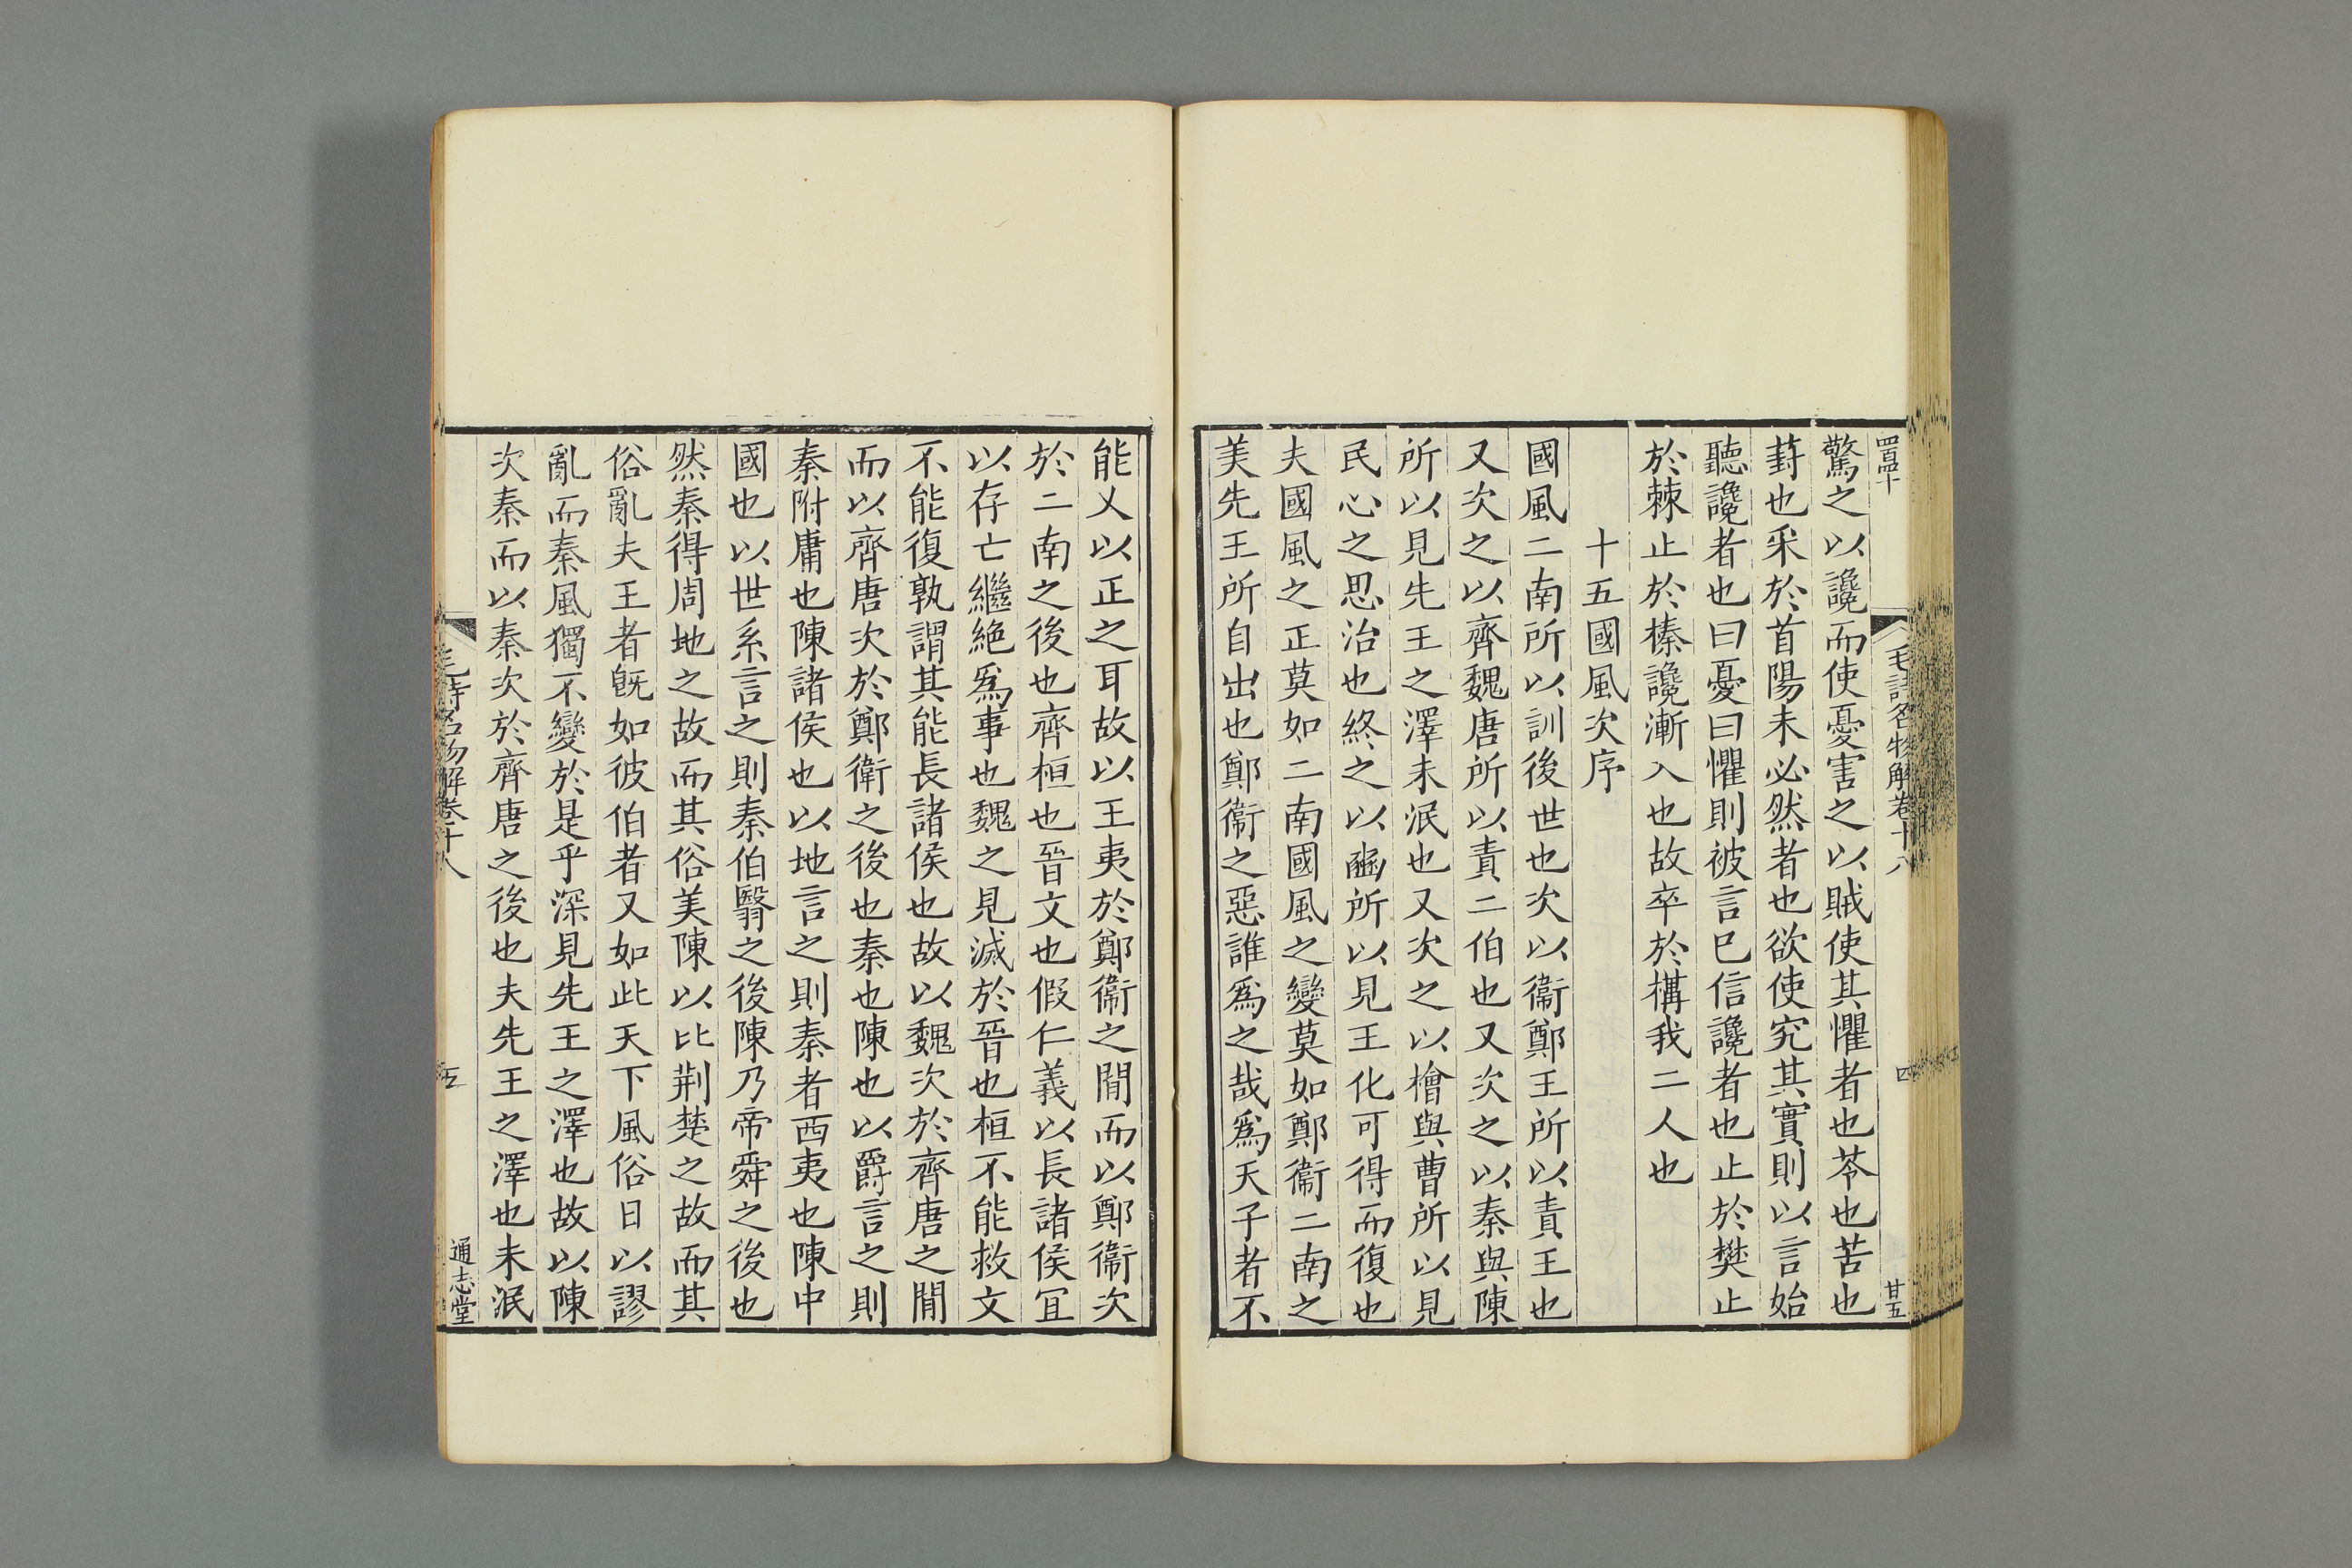 驚之以讒而使憂害之以賊使其懼者也苓也苦也
葑也采於首陽未必然者也欲使究其實則以言始
聽讒者也曰憂曰懼則被言巳信讒者也止於樊止
於棘止於榛讒漸入也故卒於構我二人也
十五國風次序
國風二南所以訓後世也次以衞鄭王所以責王也
又次之以齊魏唐所以責二伯也又次之以秦與陳
所以見先王之澤未泯也又次之以檜與曹所以見
民心之思治也終之以豳所以見王化可得而復也
夫國風之正莫如二南國風之變莫如鄭衞二南之
美先王所自出也鄭衞之惡誰爲之哉爲天子者不
毛詩名物解卷十八
四
廿五
能乂以正之耳故以王夷於鄭衞之閒而以鄭衞次
於二南之後也齊桓也晉文也假仁義以長諸侯冝
以存亡繼絶爲事也魏之見滅於晉也桓不能救文
不能復孰謂其能長諸侯也故以魏次於齊唐之閒
而以齊唐次於鄭衛之後也秦也陳也以爵言之則
秦附庸也陳諸侯也以地言之則秦者西夷也陳中
國也以世系言之則秦伯翳之後陳乃帝舜之後也
然秦得周地之故而其俗美陳以比荆楚之故而其
俗亂夫王者旣如彼伯者又如此天下風俗日以謬
亂而秦風獨不變於是乎深見先王之澤也故以陳
次秦而以秦次於齊唐之後也夫先王之澤也未泯
毛詩名物解卷十八
五
通志堂